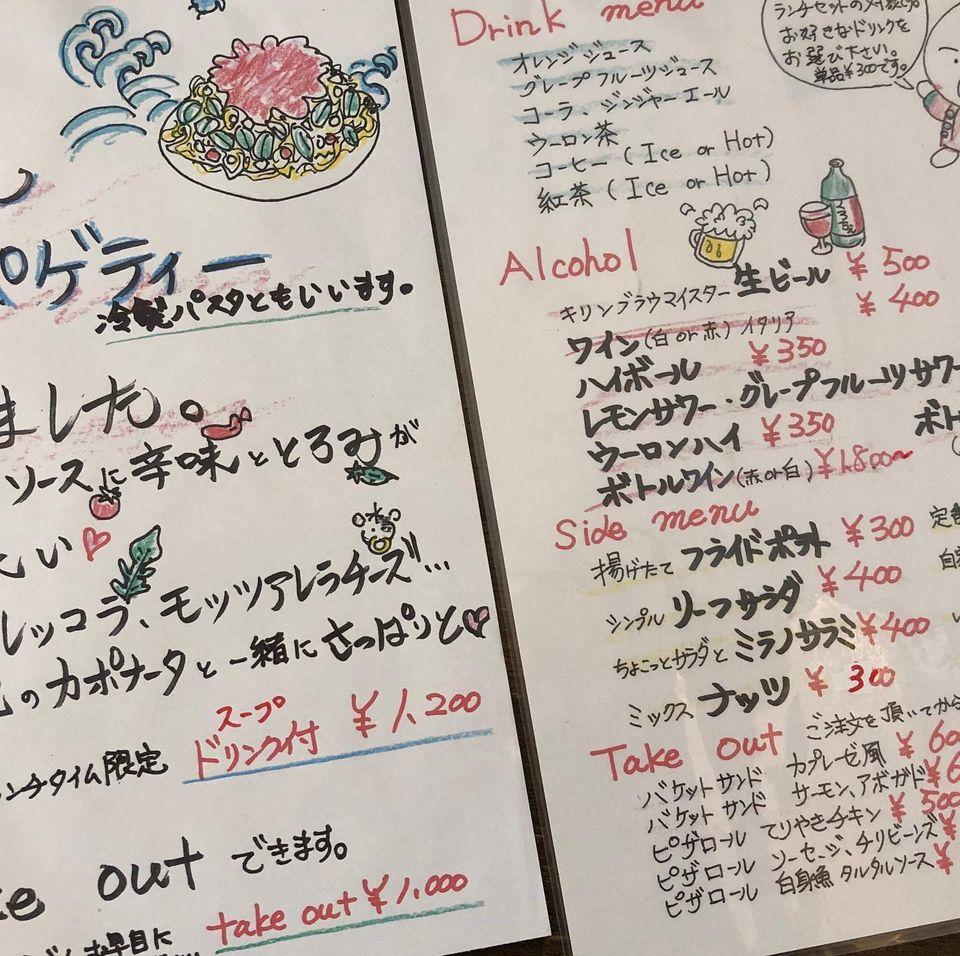 パゲティー
冷製パスタともいいます。
ました。
ソースに辛味ととろみが
たい
レッコラ、モッツアレラチーズ…
のカポナータと一緒にさっぱりと
ンチタイム限定 スープ
ドリンク付 ¥1,200
out できます。
take out ¥1,000
お早目に
Drink menu
オレンジジュース
グレープフルーツジュース
コーラ、ジンジャーエール
ウーロン茶
コーヒー (Ice or Hot)
紅茶 (Ice or Hot)
お好きなドリンクを
お選び下さい。
単品¥300です。
Alcohol
キリンブラウマイスター 生ビール ¥500
ワイン(白or赤)イタリア ¥400
ハイボール ¥350
レモンサワー・グレープフルーツサワー
ウーロンハイ ¥350
ボトルワイン(赤or白) ¥1.800〜
Side menu
揚げたて フライドポテト ¥300
シンプル リーフサラダ ¥400
ちょこっとサラダと ミラノサラミ ¥400
ミックス ナッツ ¥300
Take out ご注文を頂いてから
バケットサンド カプレーゼ風
バケットサンド サーモン、アボガド
ピザロール てりやきチキン ¥500
ピザロール ソーセージ、チリビーンズ ¥
ピザロール 白身魚 タルタルソース ¥